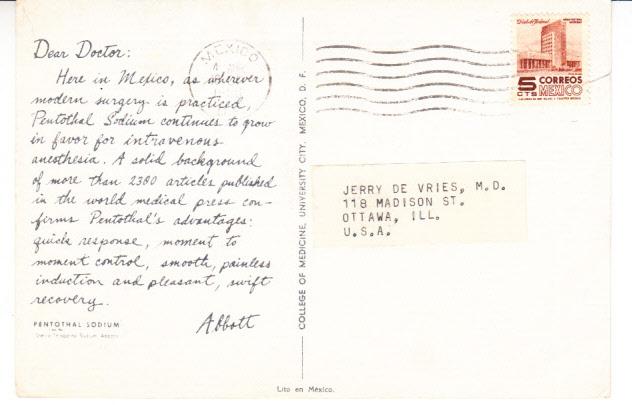 Dear Doctor:
Here in Mexico, as wherever
modern surgery is practiced,
Pentothal Sodium continues to grow
in favor for intravenous
anesthesia. A solid background
of more than 2380 articles published
in the world medical press con-
firms Pentothal's advantages:
quick response, moment to
moment control, smooth, painless
induction and pleasant, swift
recovery.
Abbott
PENTOTHAL SODIUM
Sodium, Abbott
COLLEGE OF MEDICINE, UNIVERSITY CITY, MEXICO, D. F.
Lito en México.
MEXICO
Distrito Federal
5 CTS
CORREOS
MEXICO
JERRY DE VRIES, M.D.
118 MADISON ST.
OTTAWA, ILL.
U.S.A.